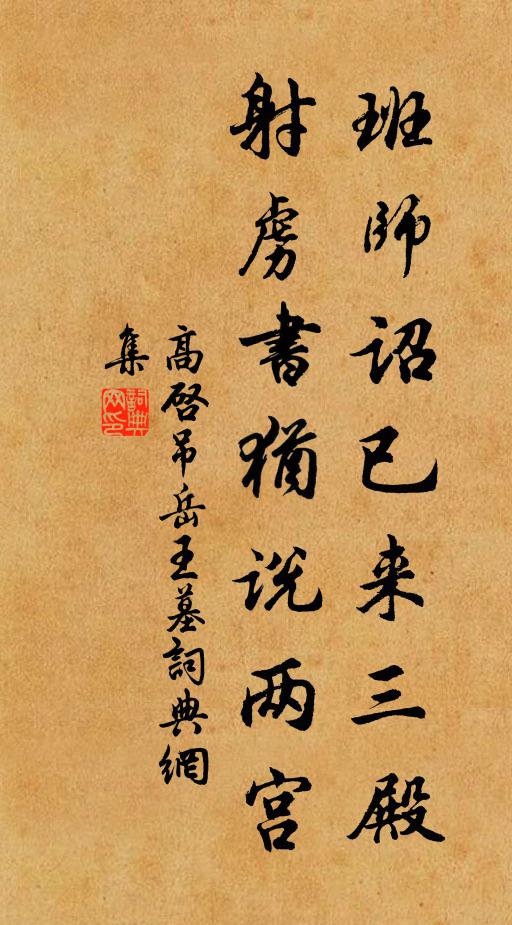 班师诏已来三殿
射虏书犹说两宫
高啓吊岳王墓詞典網
集
詞典网印